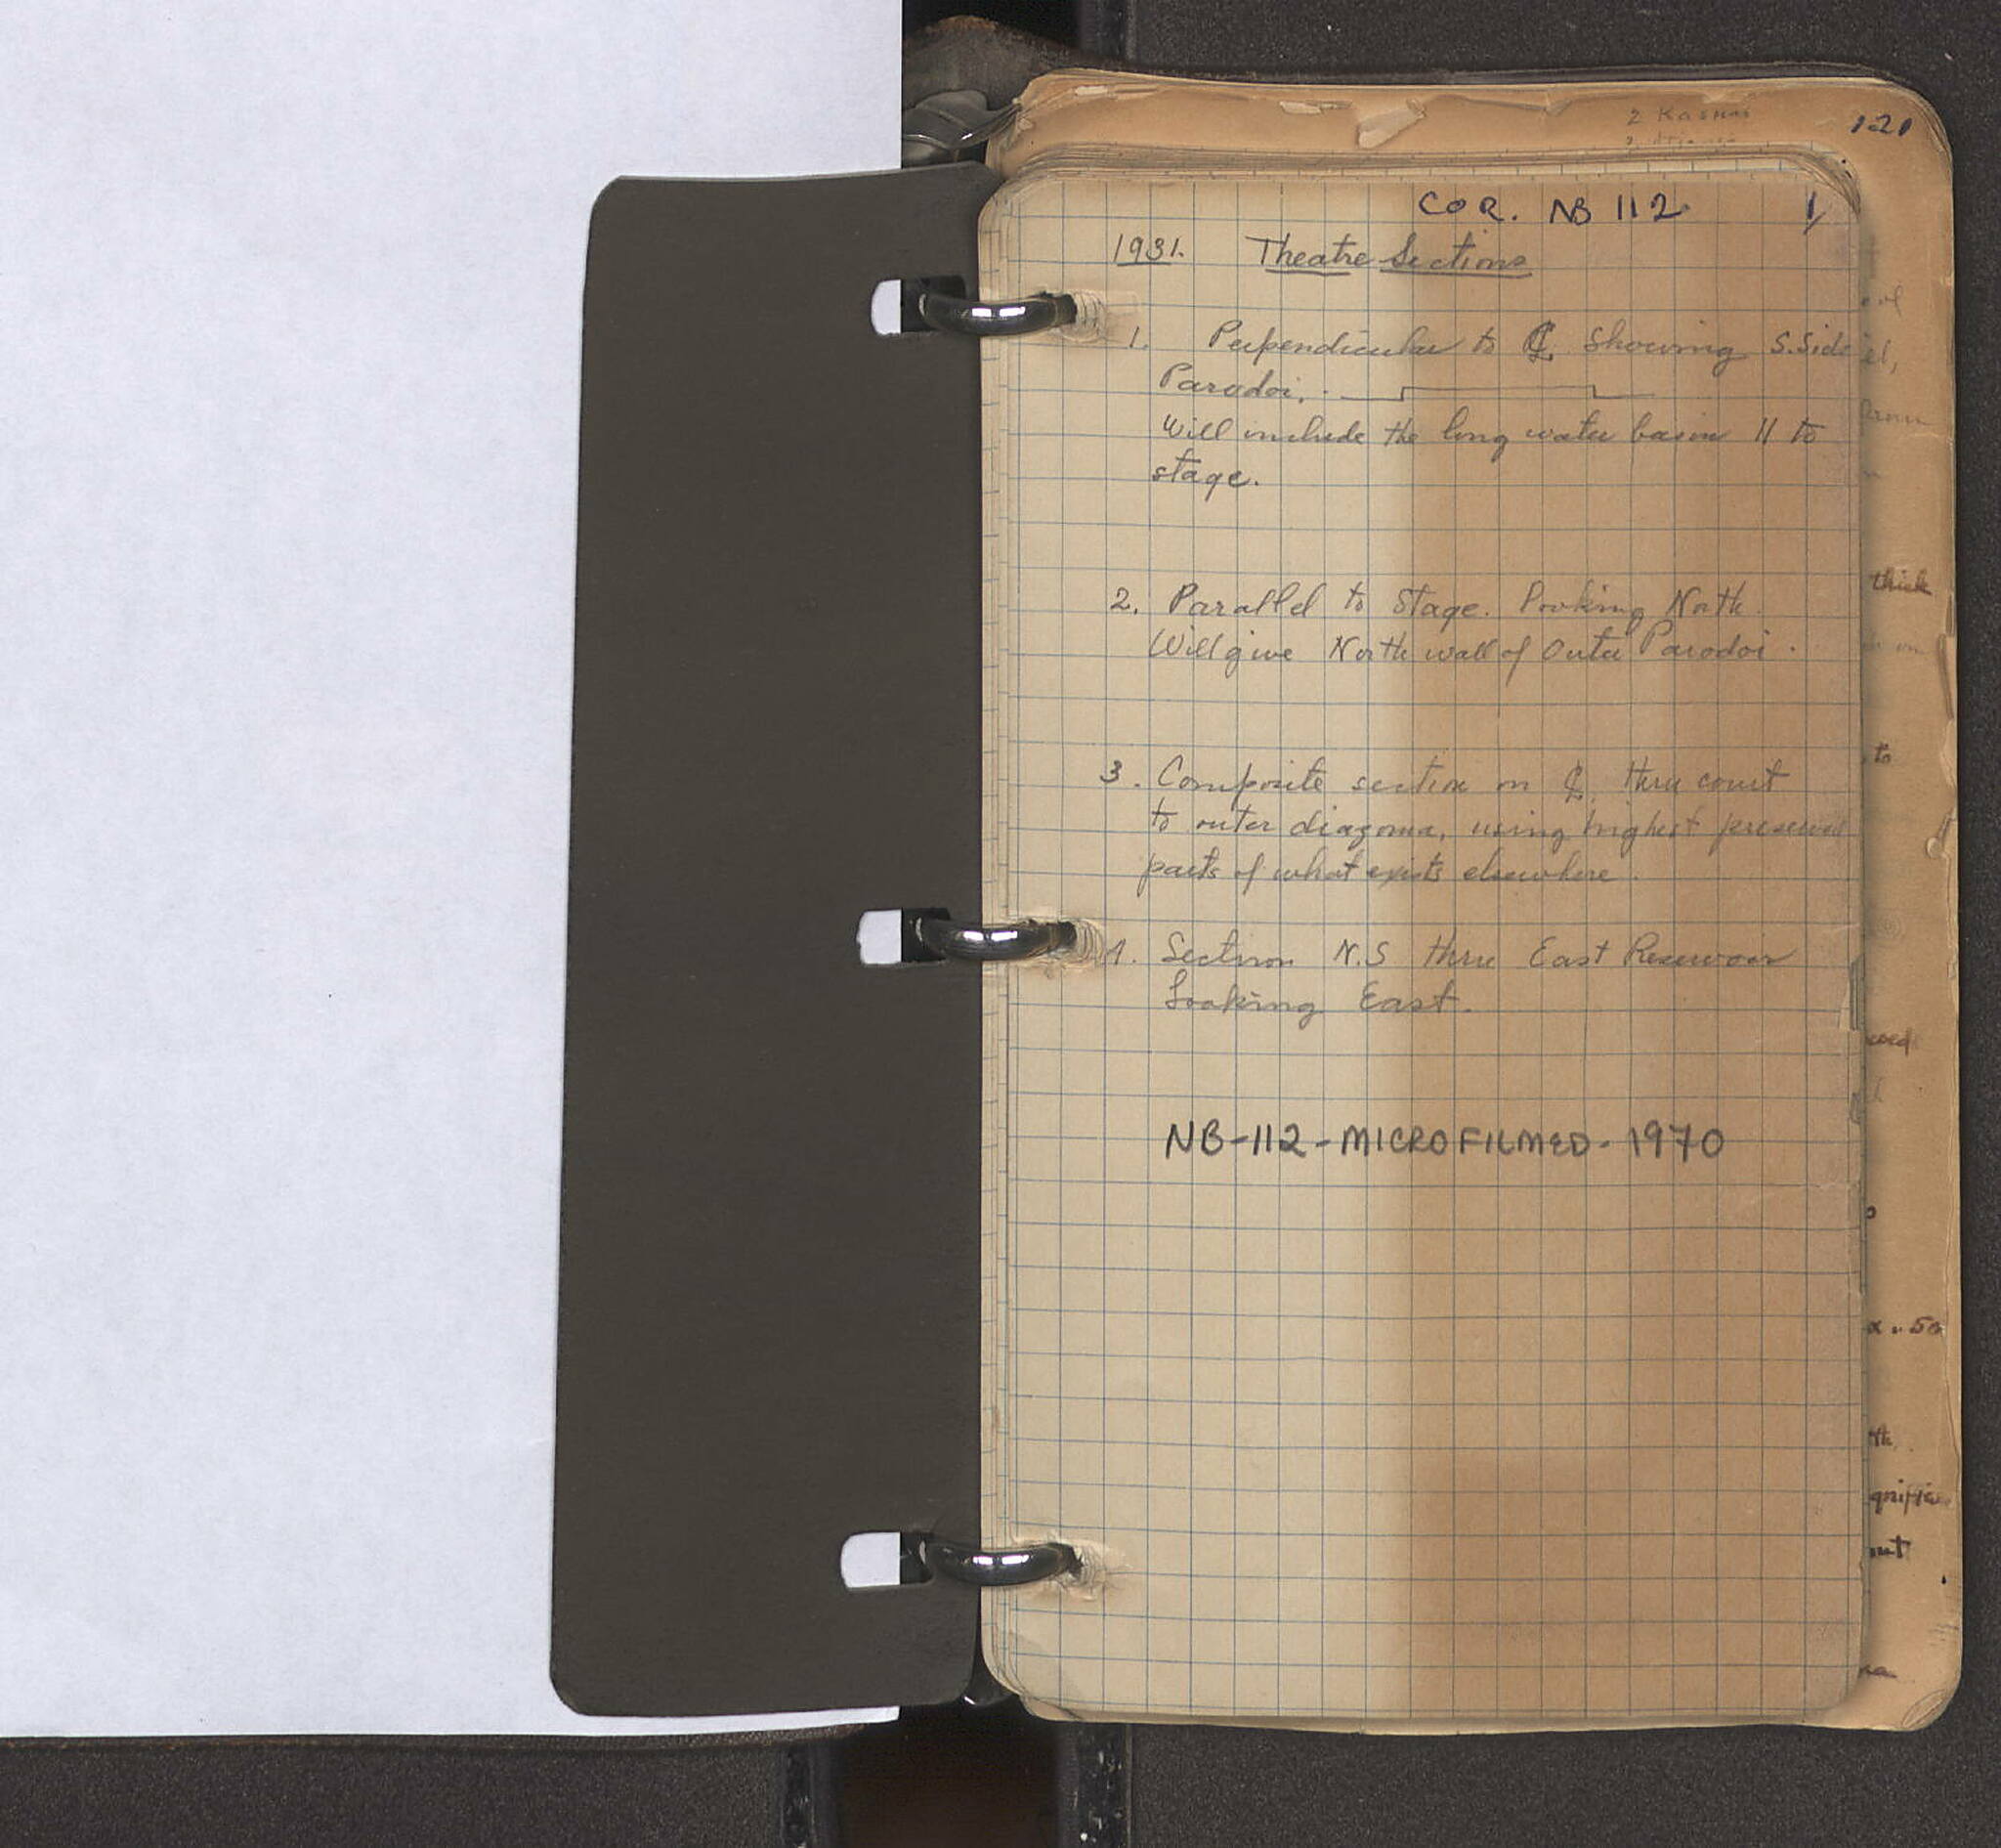 2 Kasmas
121
COR. NB 112 1
1931. Theatre Sections
1. Perpendicular to ℄ showing S. Side
Parodoi.
Will include the long water basin || to
stage.
2. Parallel to Stage. Looking North.
Will give North wall of Outer Parodoi.
3. Composite section on ℄ thru court
to outer diazoma, using highest preserved
parts of what exists elsewhere.
4. Section N.S thru East Reservoir
Looking East.
NB-112-MICROFILMED-1970
thick
to
out